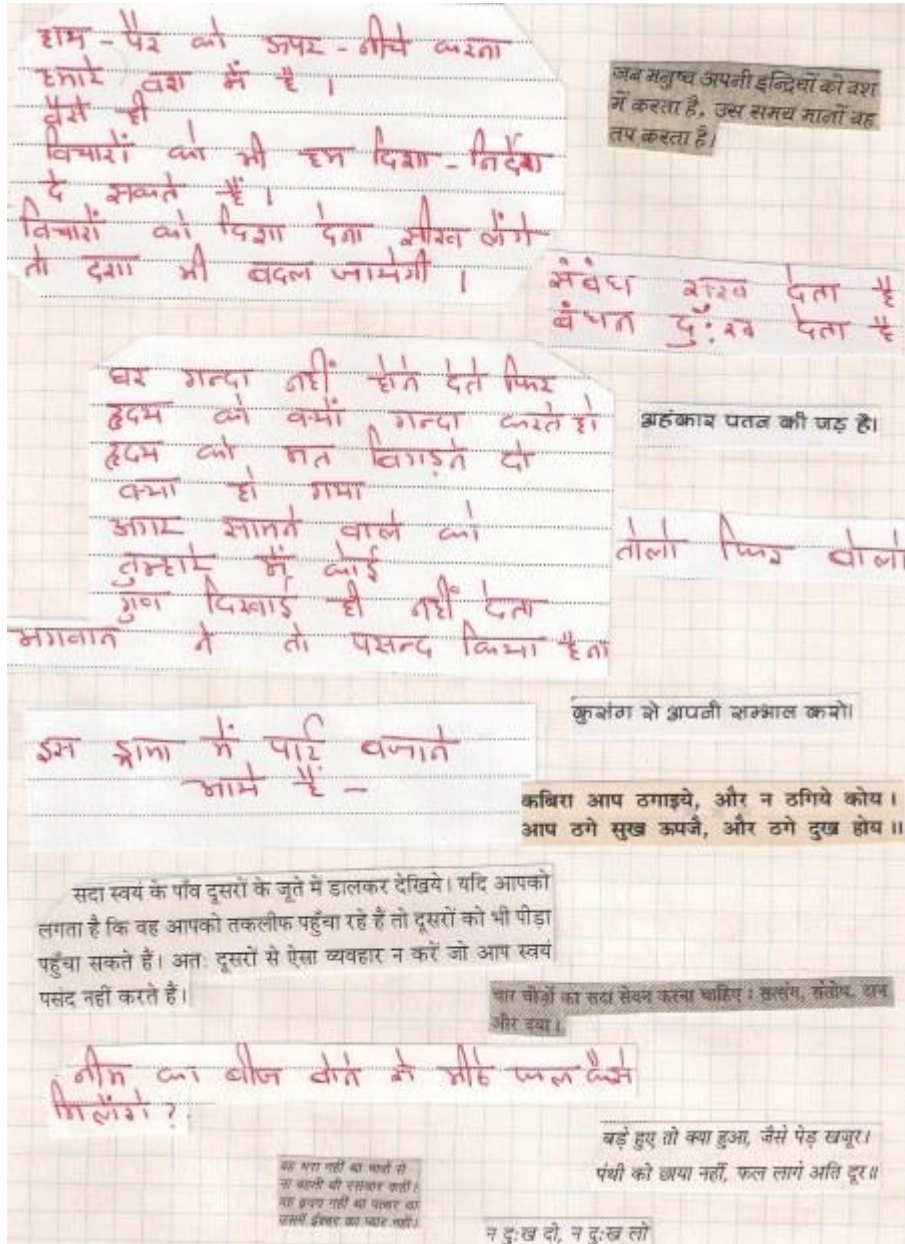 हाथ - पैर को ऊपर - नीचे करना
हमारे वश में है ।
वैसे ही
विचारों को भी हम दिशा - निर्देश
दे सकते हैं ।
विचारों को दिशा देना सीख लेंगे
तो दशा भी बदल जायेगी ।
जब मनुष्य अपनी इन्द्रियों को वश
में करता है, उस समय मानों वह
तप करता है।
संबंध सुख देता है
बंधन दुःख देता है
घर गन्दा नहीं होने देते फिर
हृदय को क्यों गन्दा करते हो
हृदय को मत बिगड़ने दो
क्या हो गया
अगर सामने वाले को
तुम्हारे में कोई
गुण दिखाई ही नहीं देता
भगवान ने तो पसन्द किया है ना
अहंकार पतन की जड़ है।
तोलो फिर बोलो
कुसंग से अपनी सम्भाल करो।
इस ड्रामा में पार्ट बजाने
आये हैं -
कबिरा आप ठगाइये, और न ठगिये कोय ।
आप ठगे सुख ऊपजै, और ठगे दुख होय ॥
सदा स्वयं के पाँव दूसरों के जूते में डालकर देखिये। यदि आपको
लगता है कि वह आपको तकलीफ पहुँचा रहे हैं तो दूसरों को भी पीड़ा
पहुँचा सकते हैं। अतः दूसरों से ऐसा व्यवहार न करें जो आप स्वयं
पसंद नहीं करते हैं।
चार चीज़ों का सदा सेवन करना चाहिए : सत्संग, संतोष, दान
और दया ।
नीम का बीज बोने से मीठे फल कैसे
मिलेंगे ?
बड़े हुए तो क्या हुआ, जैसे पेड़ खजूर।
पंथी को छाया नहीं, फल लागे अति दूर॥
वह भरा नहीं था भावों से
ना बहती थी रसधार कहीं।
वह हृदय नहीं था पत्थर था
उसमें ईश्वर का प्यार नहीं।
न दुःख दो, न दुःख लो